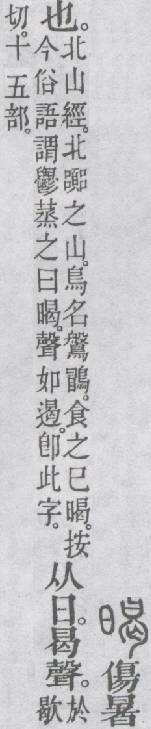 暍 傷暑
也。
北山經。北嚻之山。鳥名䳃䳜。食之已暍。按
今俗語謂鬱蒸之曰暍。聲如遏。卽此字。
从日。曷聲。
於
歇
切。十五部。